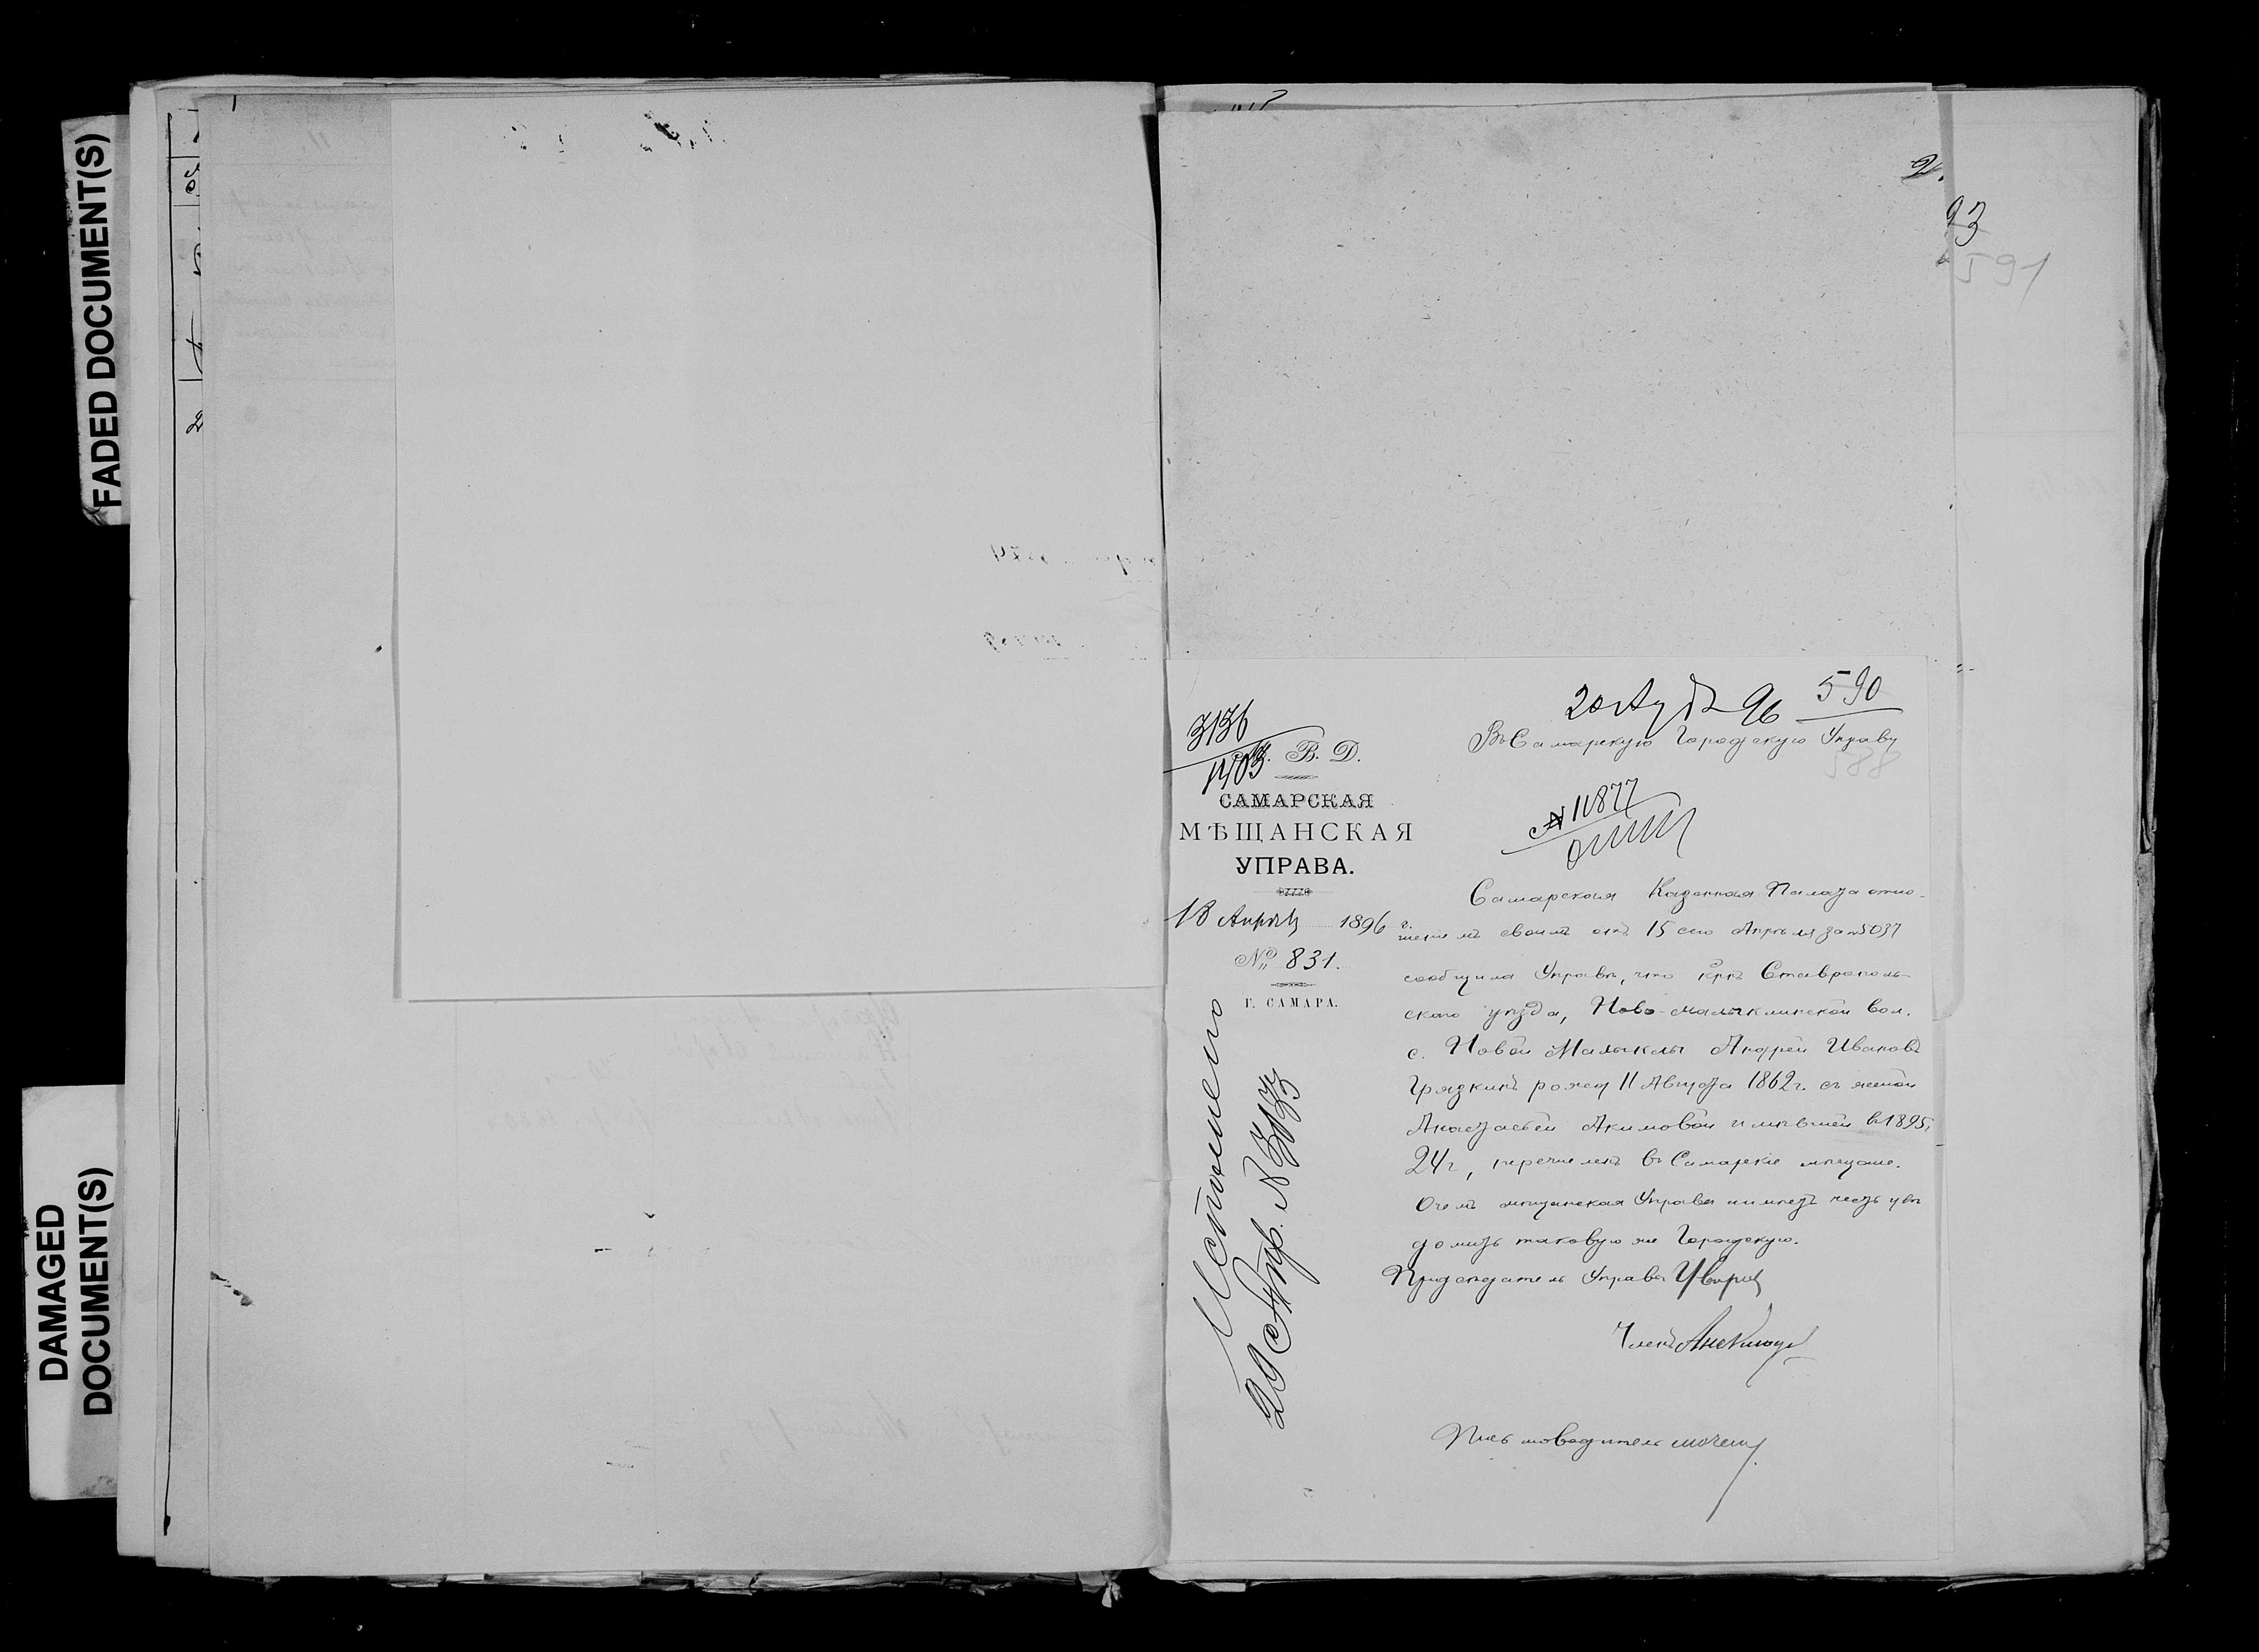 FADED DOCUMENT(S)
DAMAGED
DOCUMENT(S)
2.
93
591
20 96 590
Въ Самарскую Городскую Управу
588
3136
1403
М. В. Д.
САМАРСКАЯ
МѢЩАНСКАЯ
УПРАВА.
18 Апрѣля 1896 г.
№ 831.
Г. САМАРА.
№ 11877
Самарская Казенная Палата отно-
шенiемъ своимъ отъ 15 сего Апрѣля за № 5037
сообщила Управѣ, что кр-нъ Ставрополь-
скаго уѣзда, Ново-Малыклинской вол.
с. Новой Малыклы Андрей Ивановъ
Грязкинъ рожден 11 Августа 1862 г. съ женой
Анастасьей Акимовой имѣвшей въ 1895 г.
24 г, перечисленъ въ Самарскiе мѣщане.
О чемъ мѣщанская Управа имѣетъ честь увѣ
домить таковую же Городскую.
Предсѣдатель Управы
Членъ
Письмоводитель
Исполнено
20 Апр. №